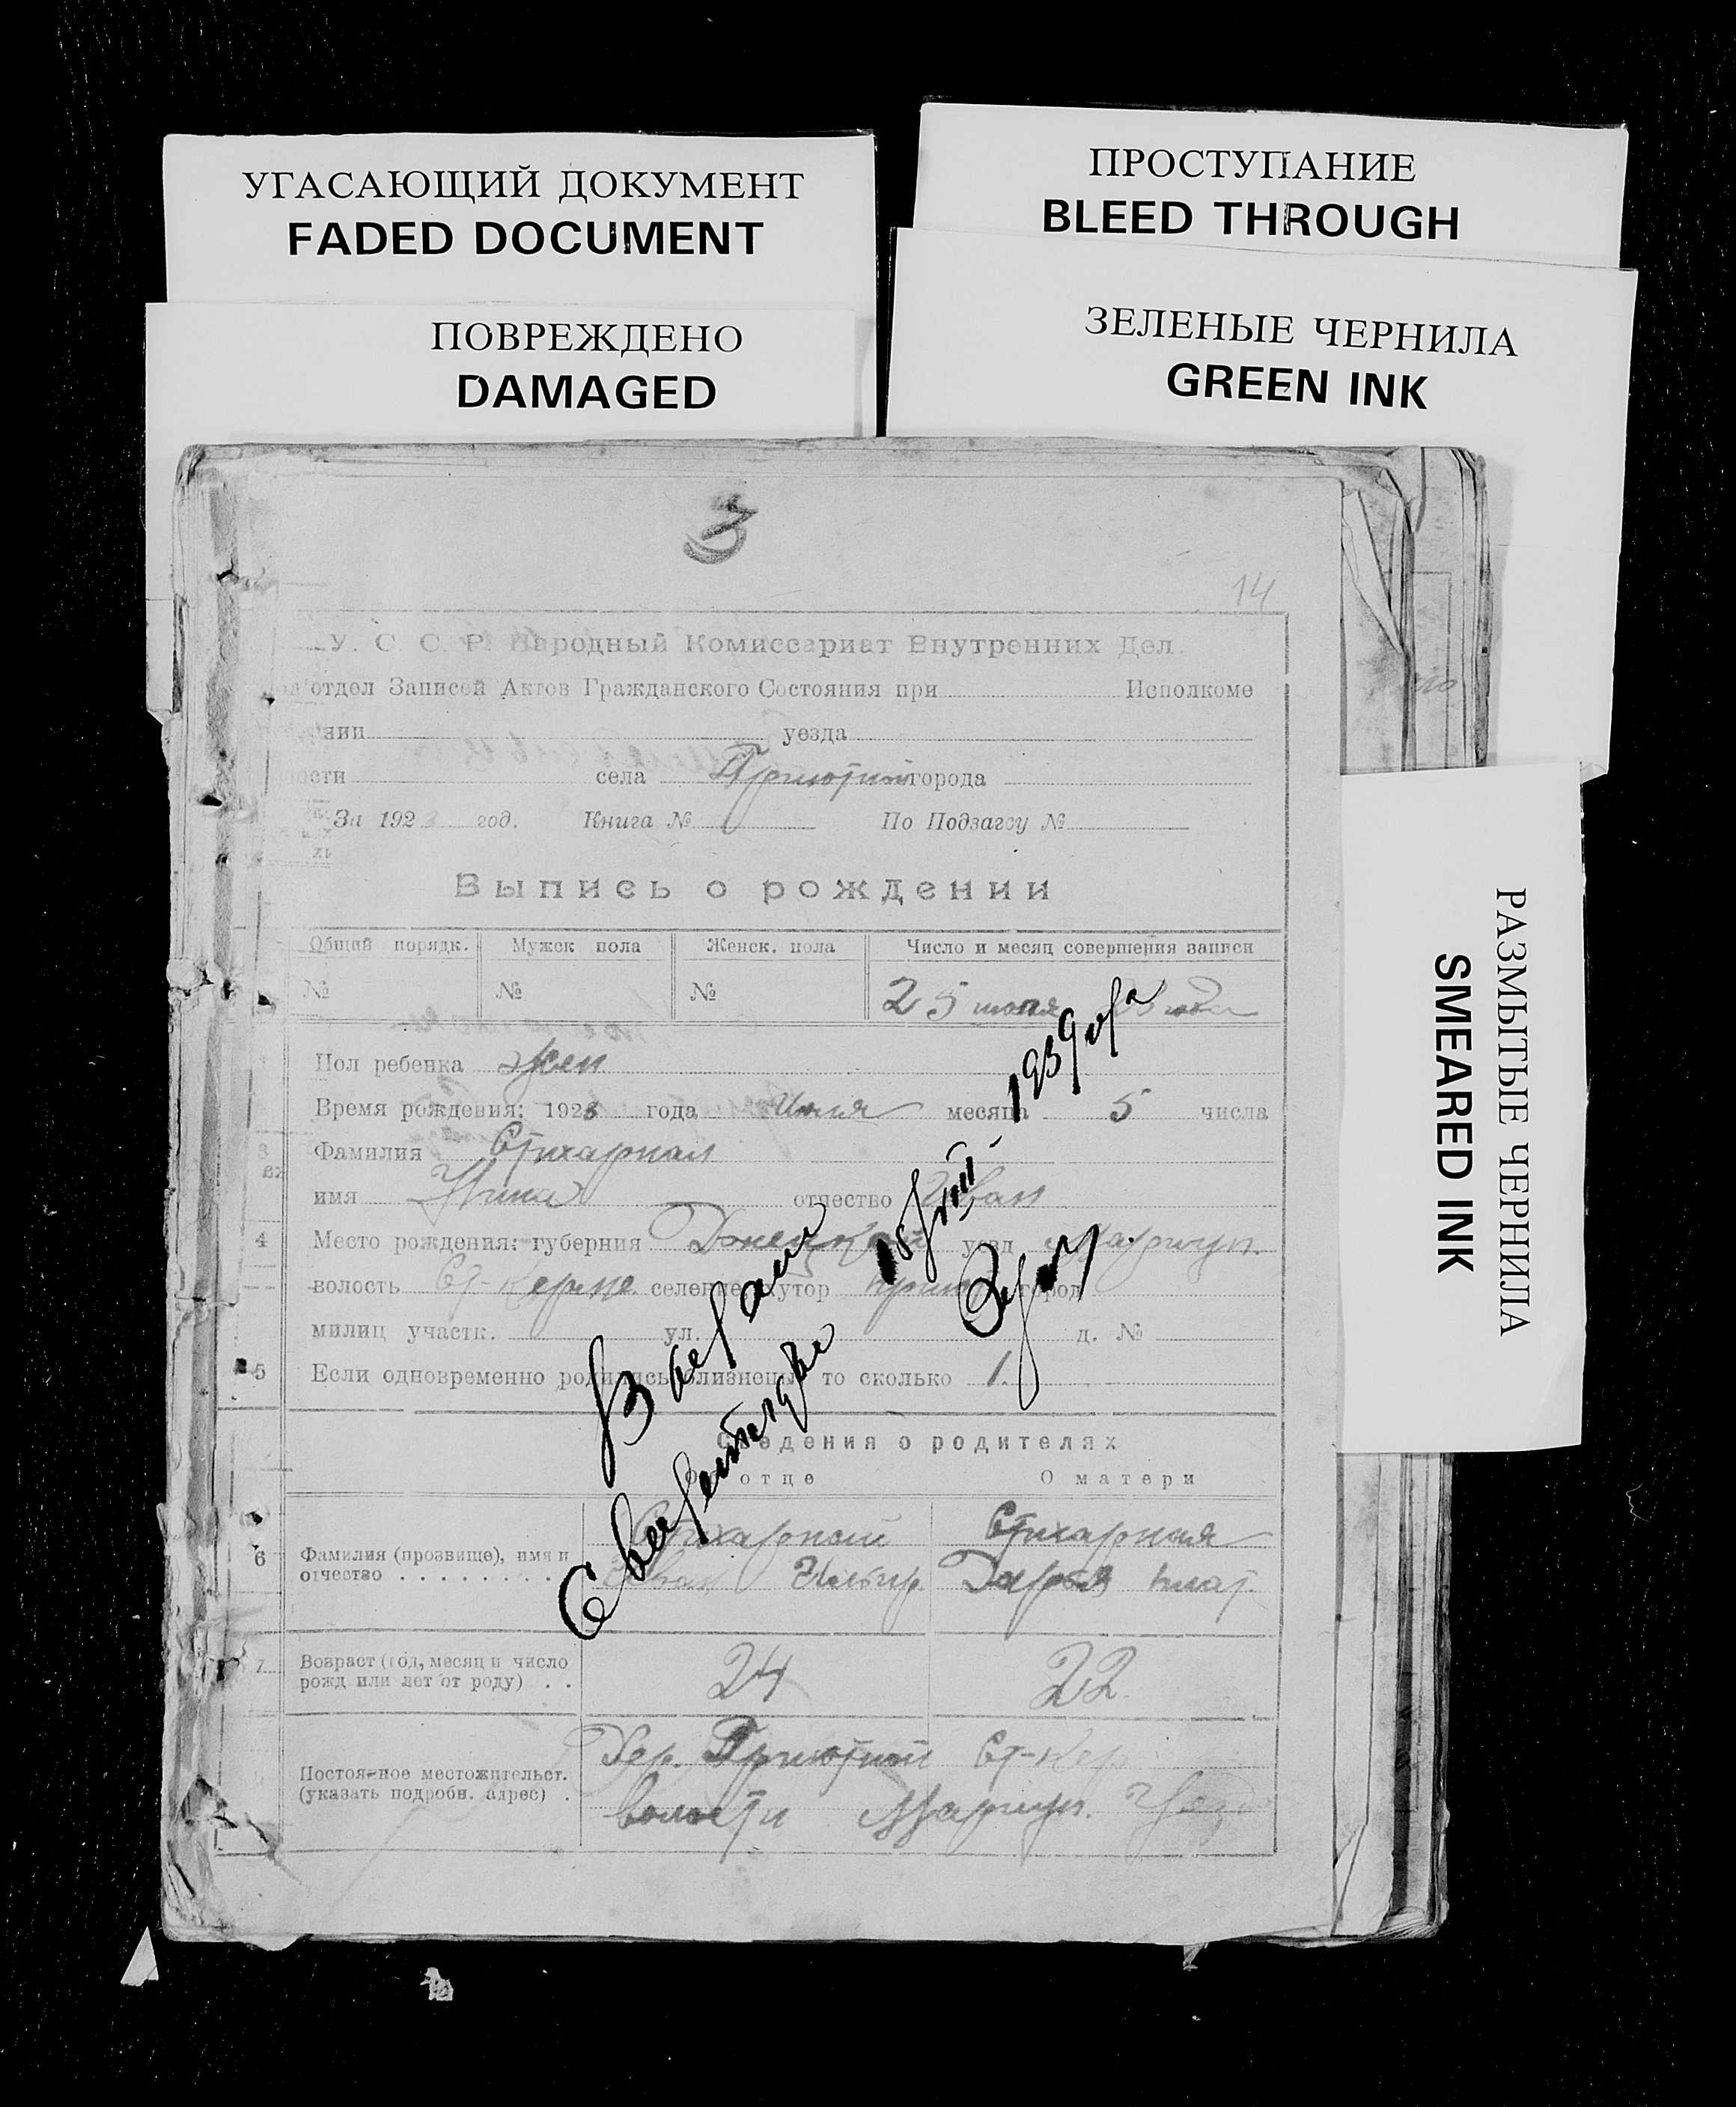 УГАСАЮЩИЙ ДОКУМЕНТ
FADED DOCUMENT
ПРОСТУПАНИЕ
BLEED THROUGH
ПОВРЕЖДЕНО
DAMAGED
ЗЕЛЕНЫЕ ЧЕРНИЛА
GREEN INK
РАЗМЫТЫЕ ЧЕРНИЛА
SMEARED INK
3
14
У. С. С. Р. Народный Комиссариат Внутренних Дел.
отдел Записей Актов Гражданского Состояния при Исполкоме
нии уезда
ости села Приютной города
За 192 год. Книга № По Подзагсу №
Выпись о рождении
Общий порядк. Мужск пола Женск. пола Число и месяц совершения записи
№ № № 25 июля
Пол ребенка жен
Время рождения: 1923 года Июля месяца 5 числа
3 Фамилия Стихарная
имя Нина отчество Иван
4 Место рождения: губерния Донецкой уезд Мариуп.
волость Ст-Керме. селение хутор Приют город
милиц участк. ул. д. №
5 Если одновременно родились близнецы, то сколько 1.
Выдано
Свидетельство
1939 года
Сведения о родителях
Об отце О матери
6 Фамилия (прозвище), имя и отчество Стихарный Иван Стихарная Дарья Игнат
7 Возраст (год, месяц и число рожд или лет от роду) 24 22
Постоянное местожительст. (указать подробн. адрес) Хер. Приютной Ст-Кер
волости Мариуп. Уезд